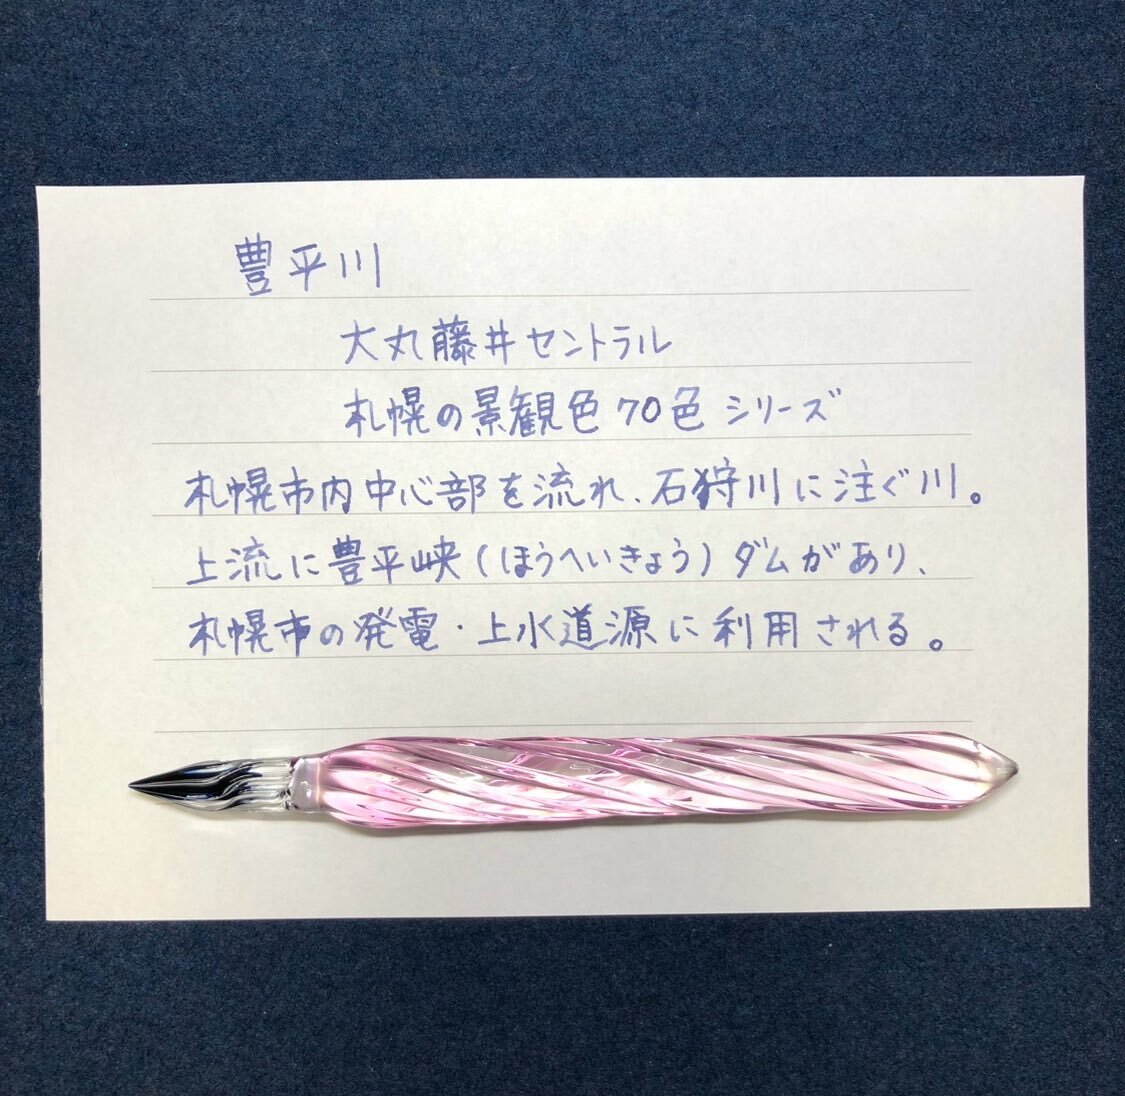 豊平川
大丸藤井セントラル
札幌の景観色70色シリーズ
札幌市内中心部を流れ、石狩川に注ぐ川。
上流に豊平峡(ほうへいきょう)ダムがあり、
札幌市の発電・上水道源に利用される。